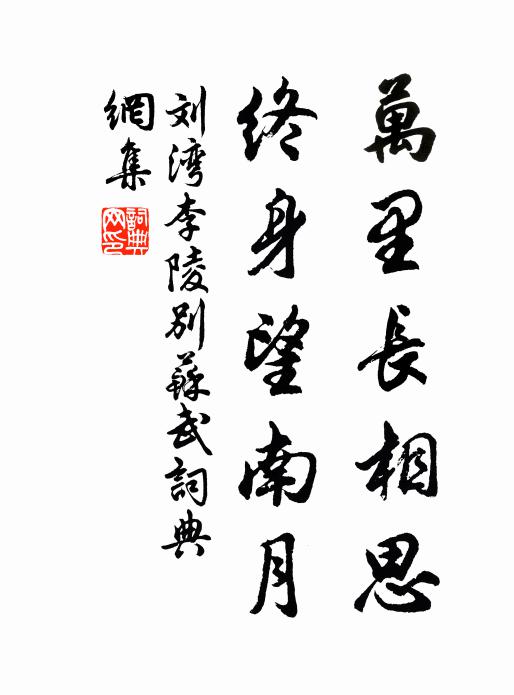 萬里長相思
終身望南月
刘湾李陵別蘇武詞典
網集
詞典
网印